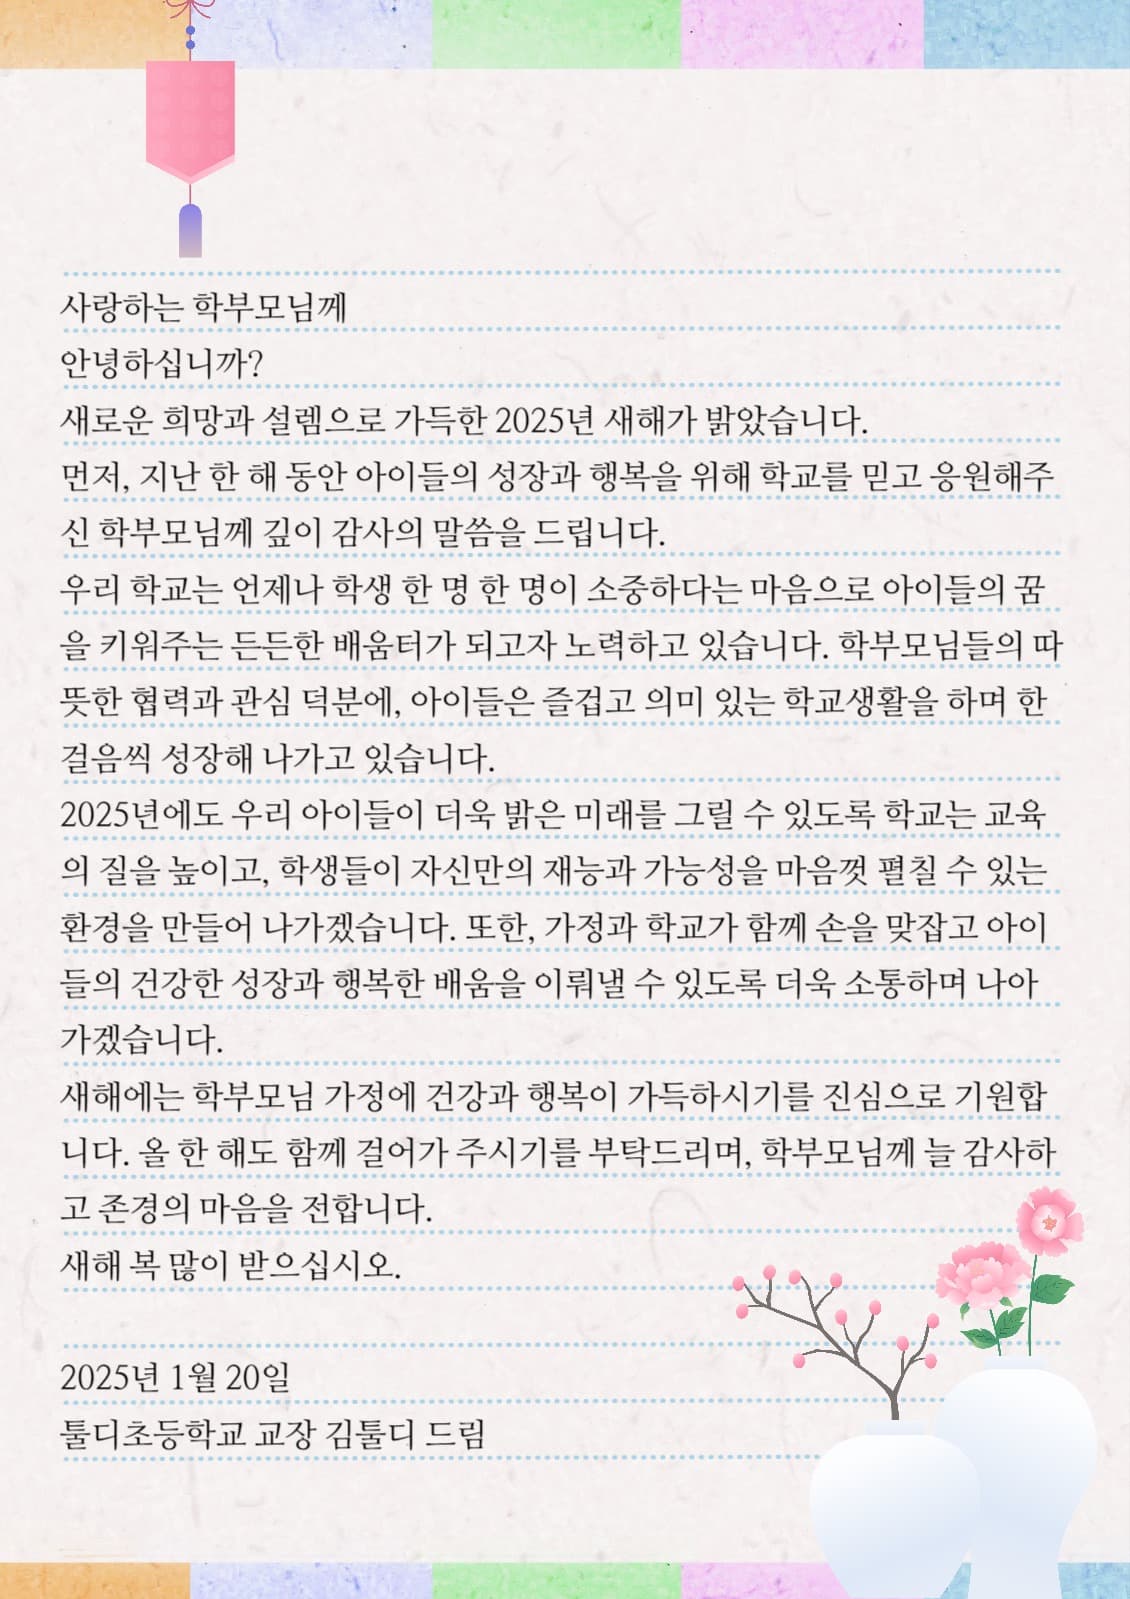 사랑하는 학부모님께
안녕하십니까?
새로운 희망과 설렘으로 가득한 2025년 새해가 밝았습니다.
먼저, 지난 한 해 동안 아이들의 성장과 행복을 위해 학교를 믿고 응원해주
신 학부모님께 깊이 감사의 말씀을 드립니다.
우리 학교는 언제나 학생 한 명 한 명이 소중하다는 마음으로 아이들의 꿈
을 키워주는 든든한 배움터가 되고자 노력하고 있습니다. 학부모님들의 따
뜻한 협력과 관심 덕분에, 아이들은 즐겁고 의미 있는 학교생활을 하며 한
걸음씩 성장해 나가고 있습니다.
2025년에도 우리 아이들이 더욱 밝은 미래를 그릴 수 있도록 학교는 교육
의 질을 높이고, 학생들이 자신만의 재능과 가능성을 마음껏 펼칠 수 있는
환경을 만들어 나가겠습니다. 또한, 가정과 학교가 함께 손을 맞잡고 아이
들의 건강한 성장과 행복한 배움을 이뤄낼 수 있도록 더욱 소통하며 나아
가겠습니다.
새해에는 학부모님 가정에 건강과 행복이 가득하시기를 진심으로 기원합
니다. 올 한 해도 함께 걸어가 주시기를 부탁드리며, 학부모님께 늘 감사하
고 존경의 마음을 전합니다.
새해 복 많이 받으십시오.
2025년 1월 20일
툴디초등학교 교장 김툴디 드림